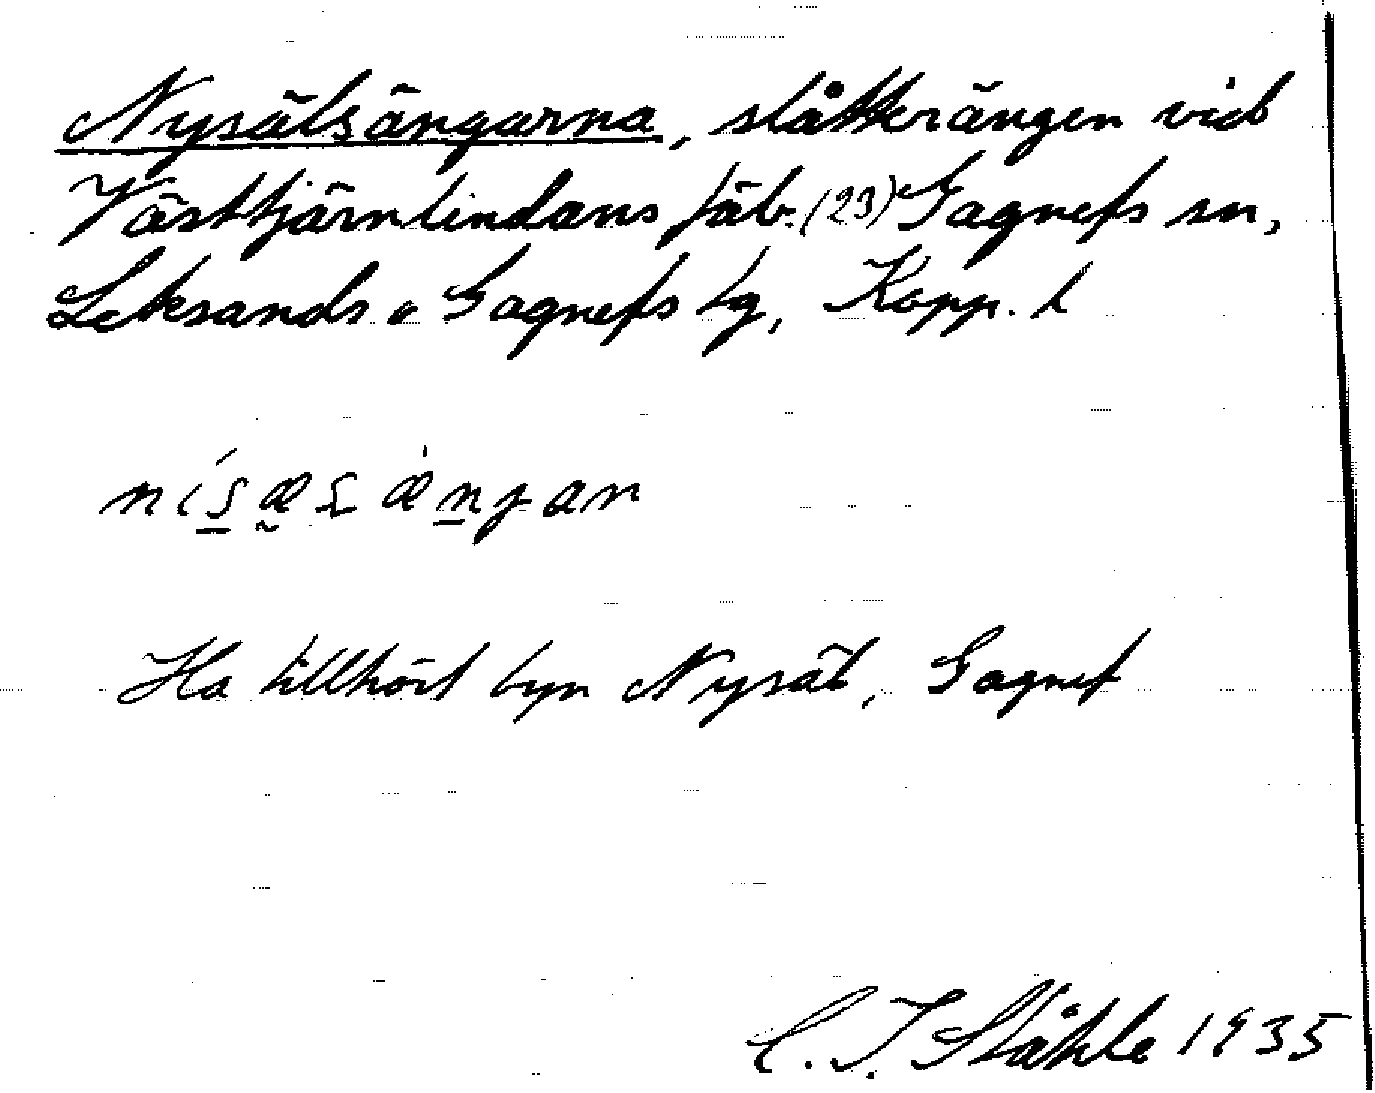 Nysälsängarna, slåtterängen vid
Västtjärnlindans fäb. (23) Gagnefs sn,
Leksands o Gagnefs tg, Kopp. l
Ha tillhört byn Nysäl, Gagnef
C. I. Ståhle 1935